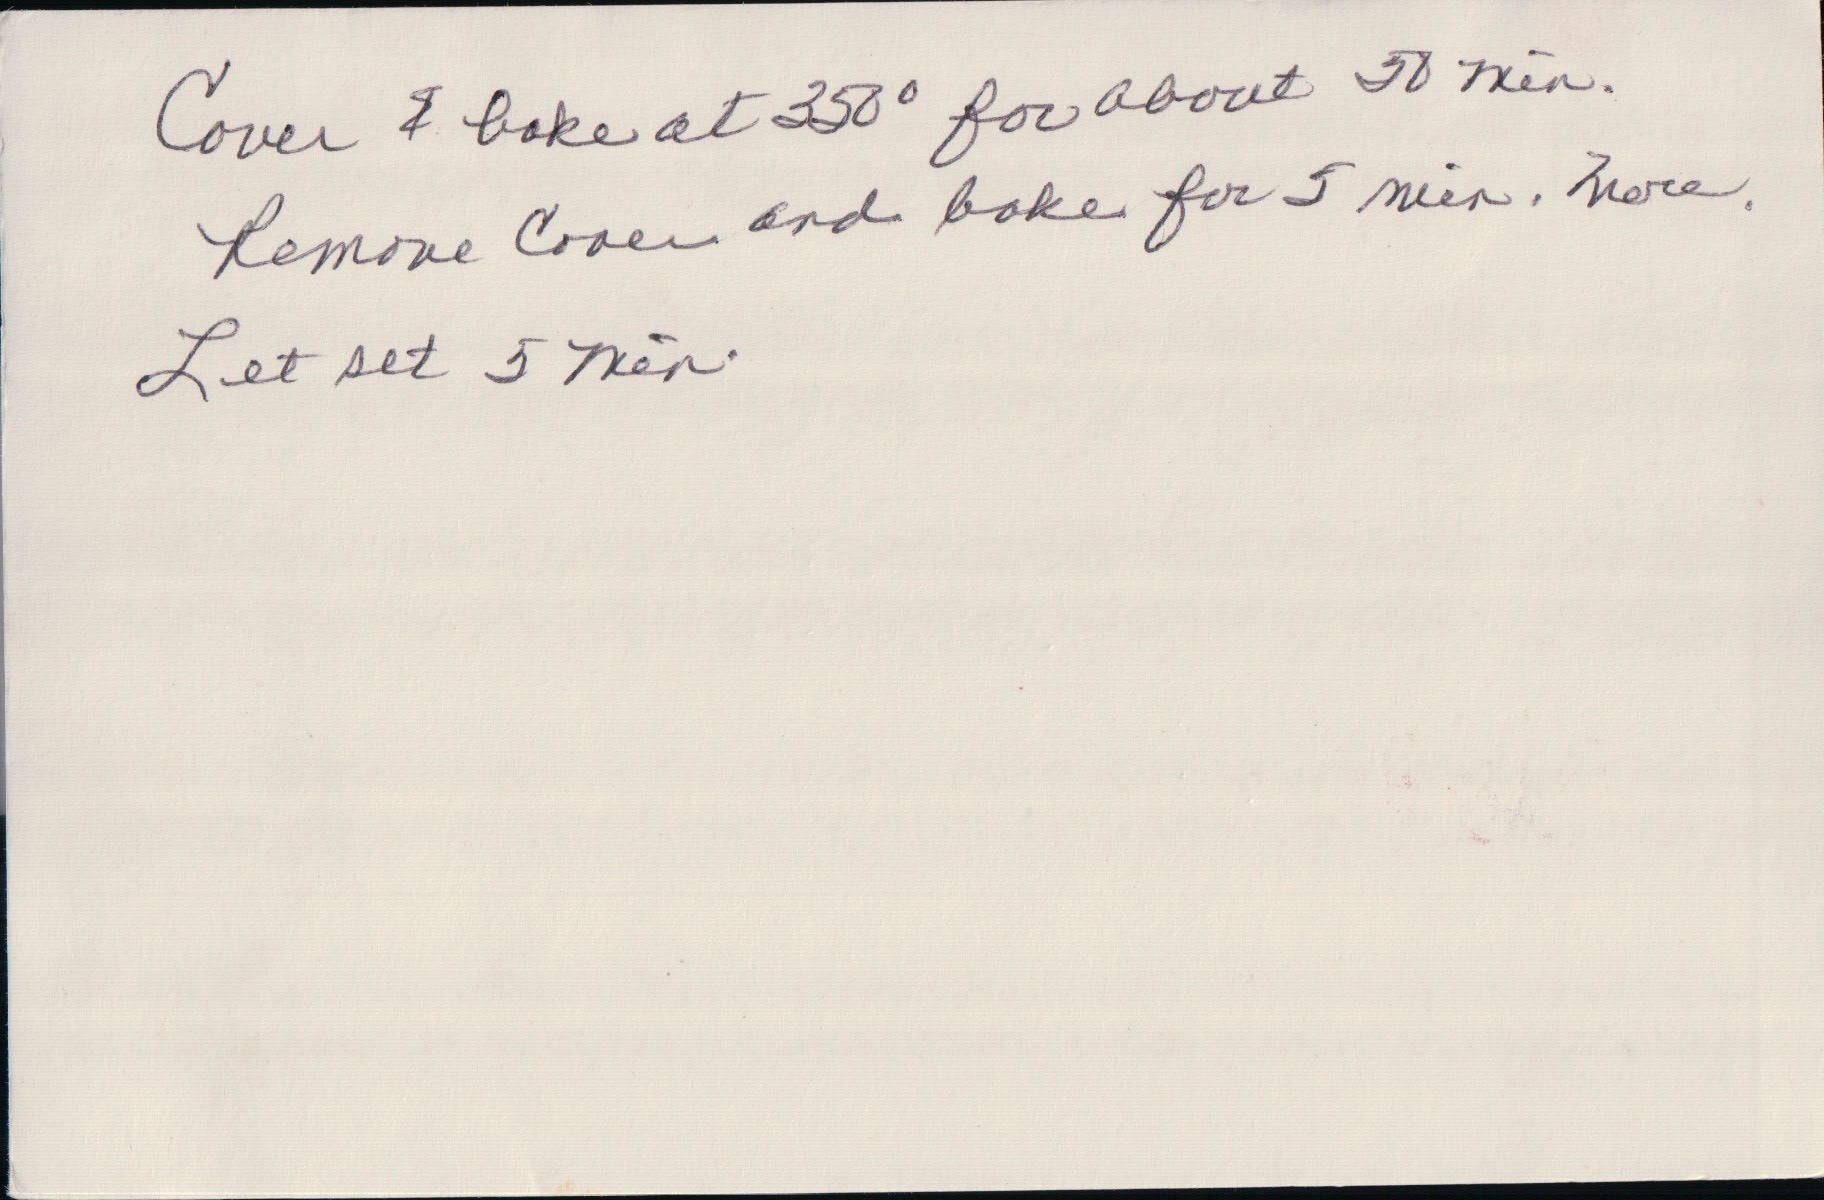 Cover & bake at 350° for about 50 min.
Remove Cover and bake for 5 min. more.
Let set 5 min.